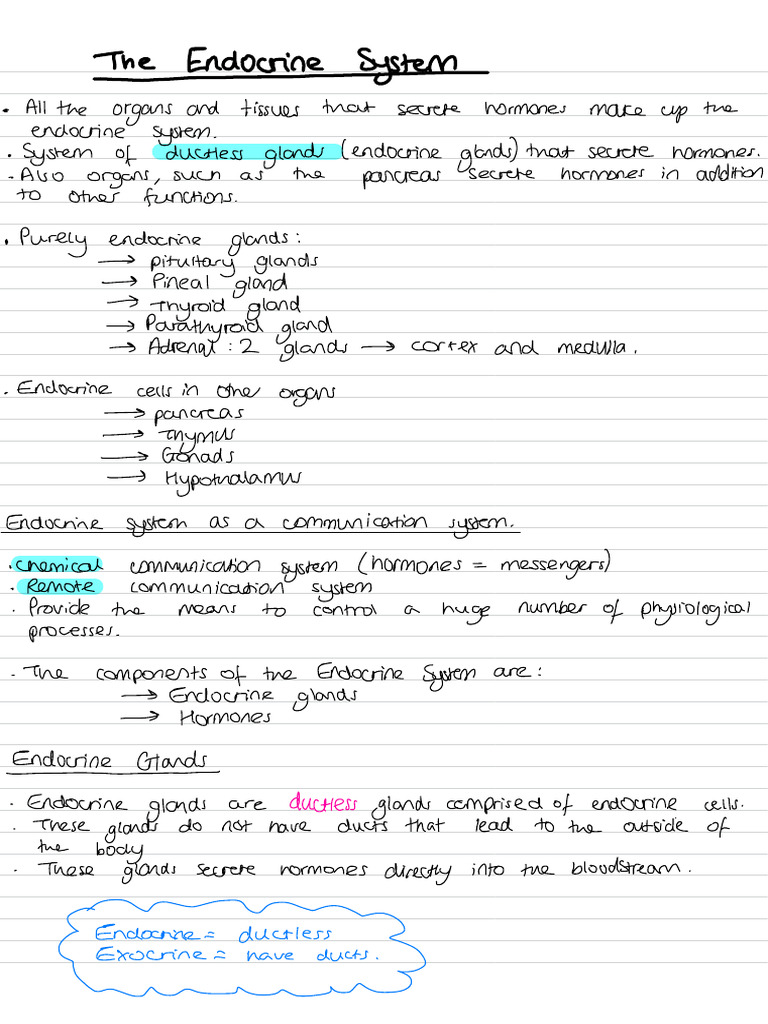 The Endocrine System
• All the organs and tissues that secrete hormones make up the
endocrine system.
• System of ductless glands (endocrine glands) that secrete hormones.
• Also organs, such as the pancreas secrete hormones in addition
to other functions.
• Purely endocrine glands:
→ pituitary glands
→ Pineal gland
→ Thyroid gland
→ Parathyroid gland
→ Adrenal: 2 glands → cortex and medulla.
• Endocrine cells in other organs
→ pancreas
→ Thymus
→ Gonads
→ Hypothalamus
Endocrine system as a communication system.
• chemical communication system (hormones = messengers)
• Remote communication system
• Provide the means to control a huge number of physiological
processes.
• The components of the Endocrine System are:
→ Endocrine glands
→ Hormones
Endocrine Glands
• Endocrine glands are ductless glands comprised of endocrine cells.
• These glands do not have ducts that lead to the outside of
the body
• These glands secrete hormones directly into the bloodstream.
Endocrine = ductless
Exocrine = have ducts.